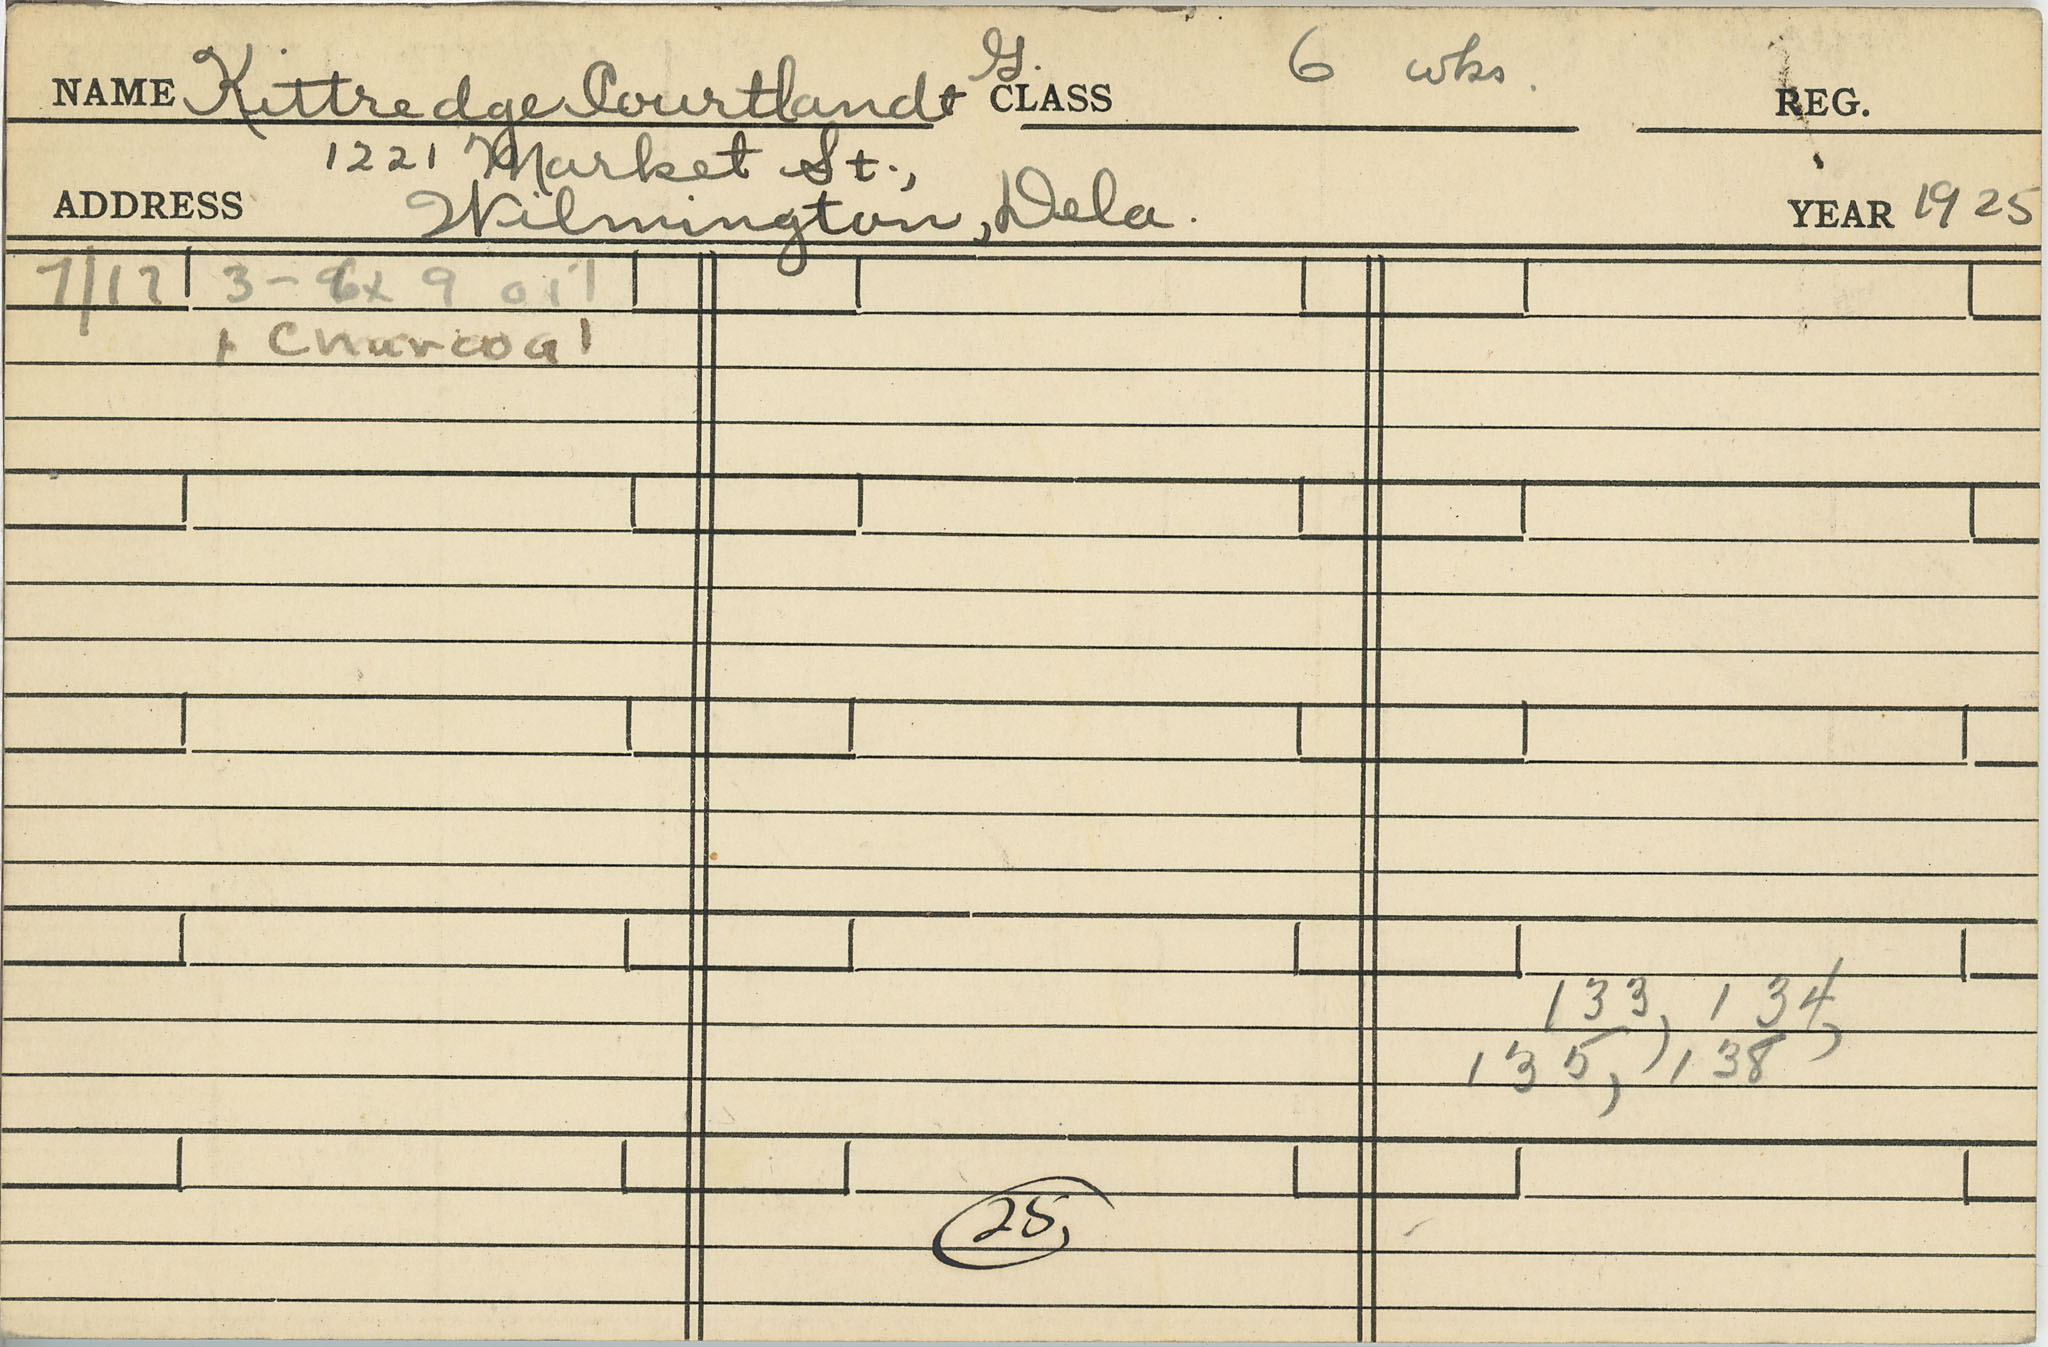 NAME Kittredge Courtlandt G. CLASS 6 wks. REG.
1221 Market St.,
ADDRESS Wilmington, Dela. YEAR 1925
7/17 3 - 6 x 9 oil
+ Charcoal
133, 134,
135, 138
25,